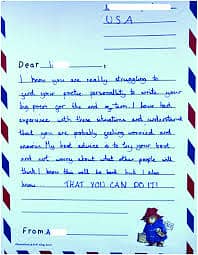 U S A
Dear I
I know you are really struggling to
find your poetic personality to write your
big poem for the end of term. I have had
experience with these situations and understand
that you are probably feeling worried and
anxious. My best advice is to try your best
and not worry about what other people will
think. I know this will be hard but I also
know .... THAT YOU CAN DO IT!
From A